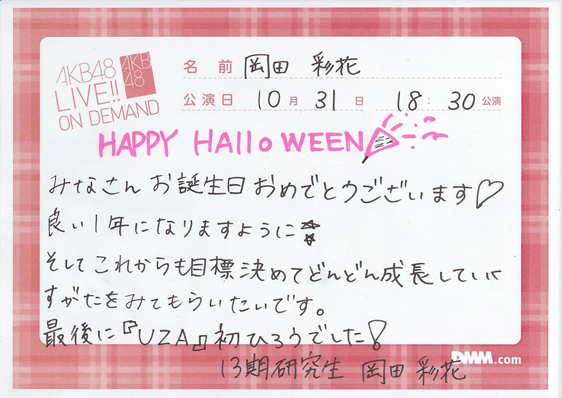 AKB48
LIVE!!
ON DEMAND
AKB
48
名前 岡田 彩花
公演日 10月 31日 18:30公演
HAPPY HAlloWEEN
みなさん お誕生日 おめでとうございます♡
良い1年になりますように☆
そしてこれからも目標決めてどんどん成長していく
すがたをみてもらいたいです。
最後に『UZA』初ひろうでした!
13期研究生 岡田 彩花
DMM.com